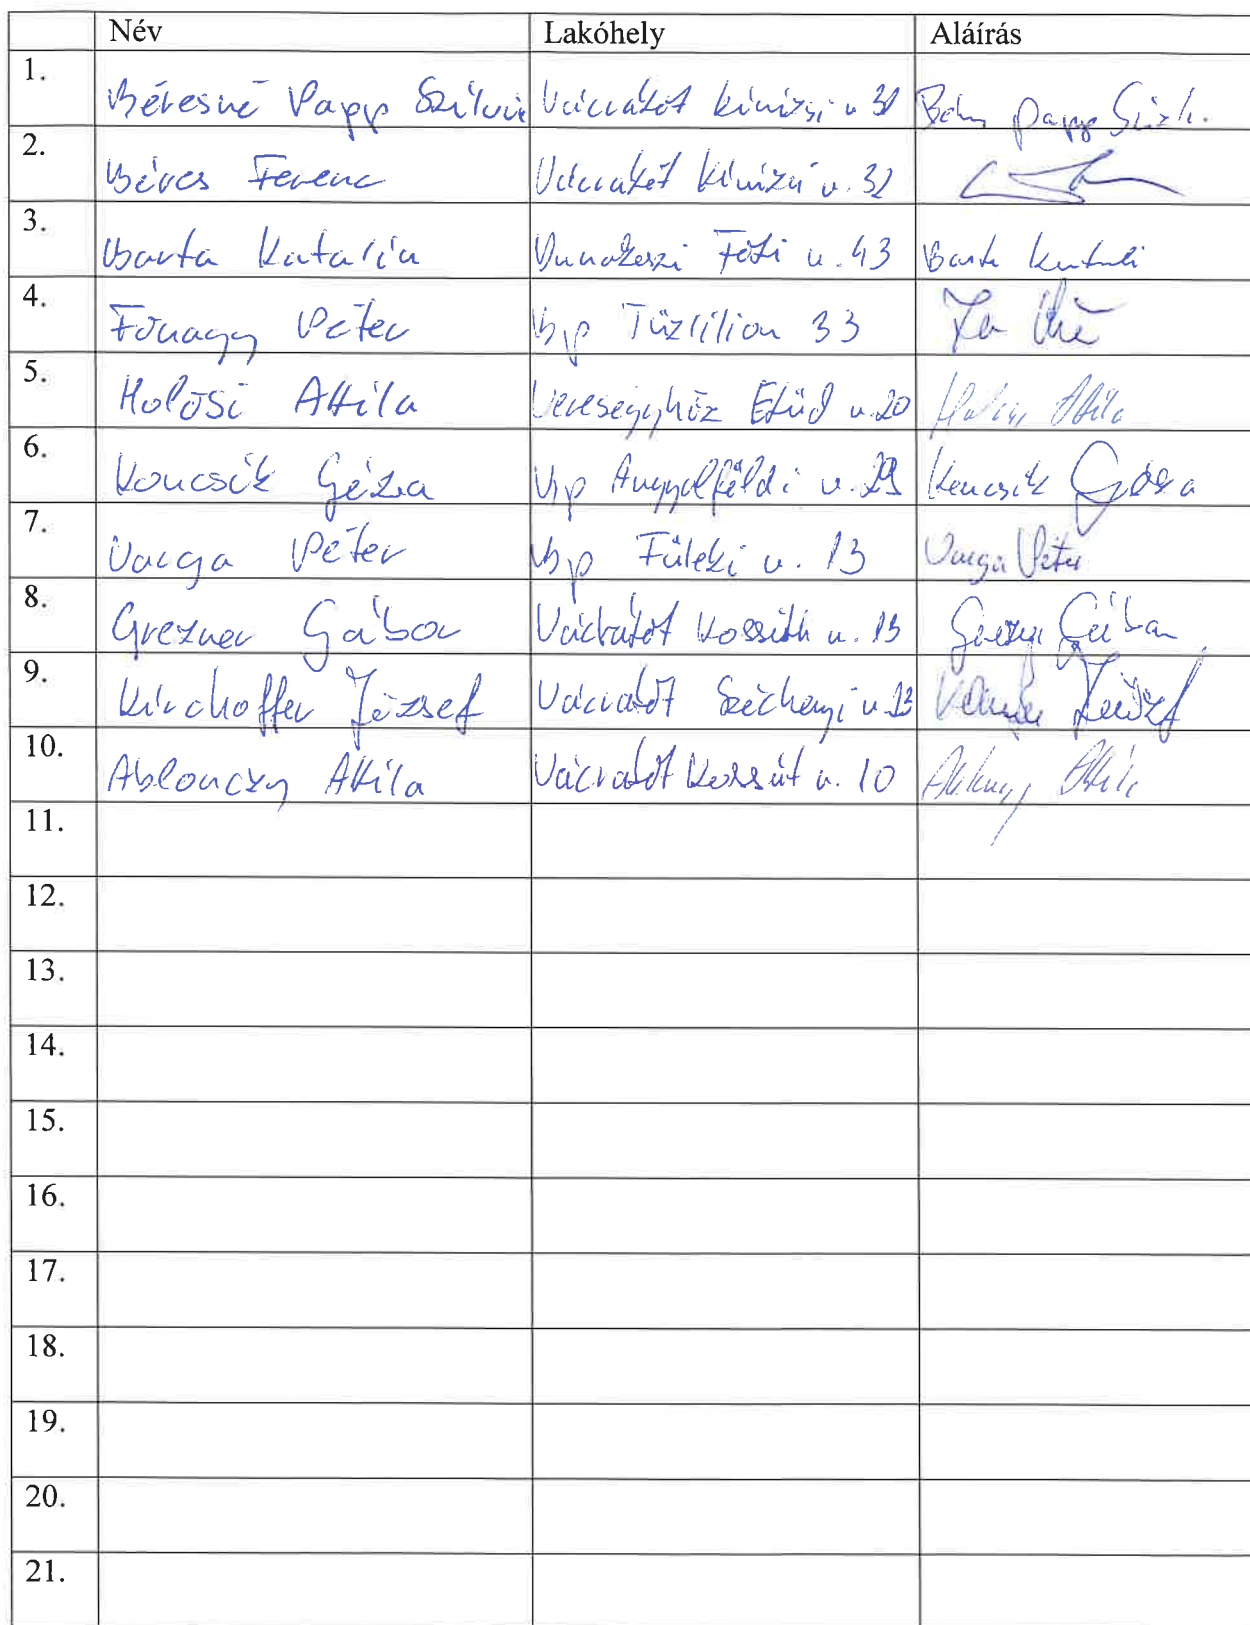 Név Lakóhely Aláírás
1. Béresné Papp Szilvia Vácrátót Kinizsi u 31 Papp
2. Béres Ferenc Vácrátót Kinizsi u. 32
3. Barta Katalin Dunakeszi Fóti u. 43 Barta Katali
4. Fónagy Péter Bp Tűzliliom 33
5. Holósi Attila Veresegyház Etűd u. 20 Attila
6. Koncsik Géza Bp Angyalföldi u. Koncsik Géza
7. Varga Péter Bp Füleki u. 13 Varga Péter
8. Grezner Gábor Vácrátót Kossuth u. 13 Gábor
9. Kirchoffer József Vácrátót Széchenyi u. 13 József
10. Ablonczy Attila Vácrátót Kossút u. 10 Attila
11.
12.
13.
14.
15.
16.
17.
18.
19.
20.
21.